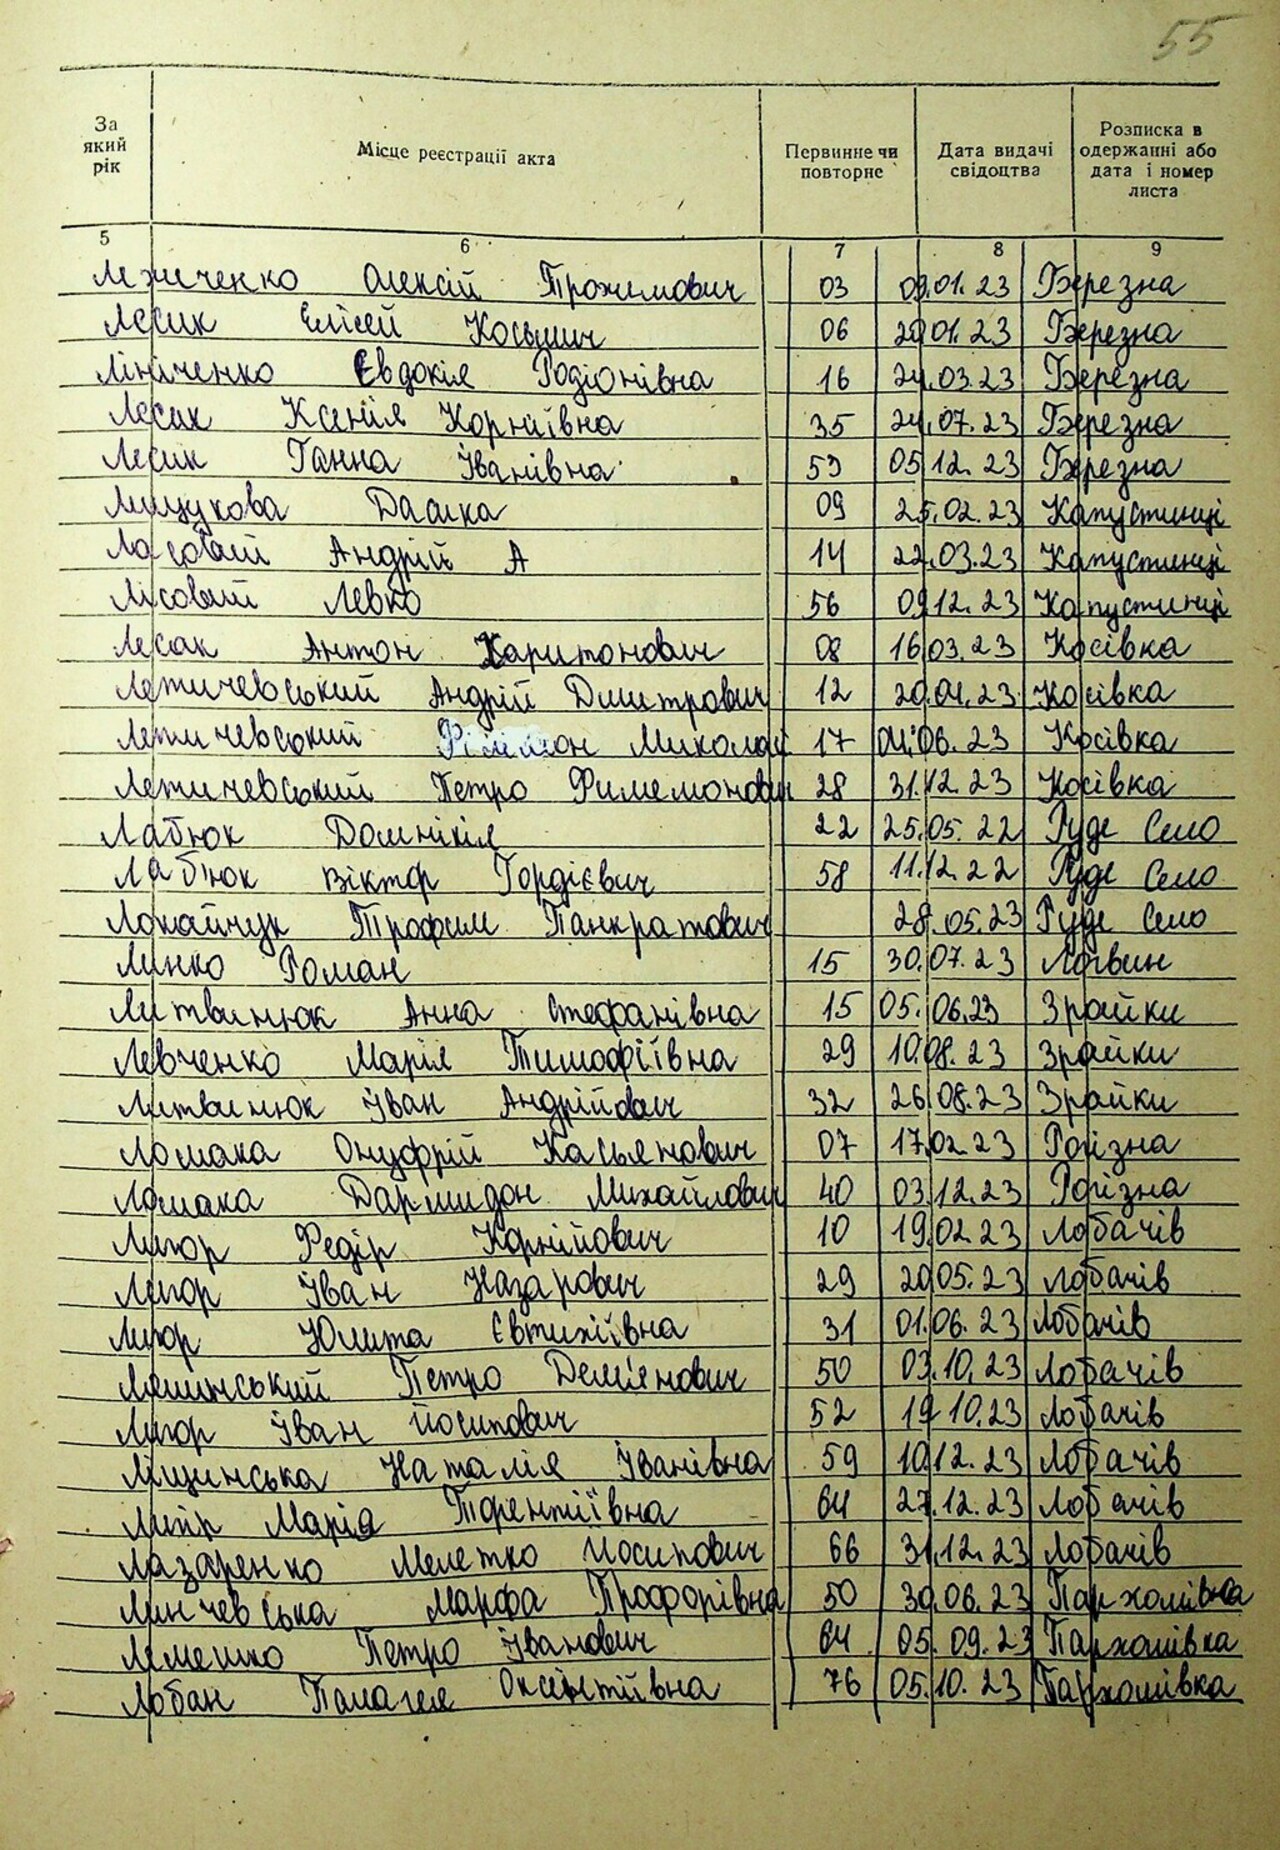 55
За який рік
Місце реєстрації акта
Первинне чи повторне
Дата видачі свідоцтва
Розписка в одержанні або дата і номер листа
5 6 7 8 9
Олексій Трохимович 03 09.01.23 Березна
Лесик Елісей Косьмич 06 20.01.23 Березна
Лініченко Євдокія Родіонівна 16 24.03.23 Березна
Лесик Ксенія Корніївна 35 24.07.23 Березна
Лесик Ганна Іванівна 53 05.12.23 Березна
Лищукова 09 25.02.23 Капустинці
Андрій А 14 22.03.23 Капустинці
Лісовий Левко 56 09.12.23 Капустинці
Лесак Антон Харитонович 08 16.03.23 Косівка
Летичевський Андрій Дмитрович 12 Косівка
Летичевський Микола 17 06.23 Косівка
Летичевський Петро Филемонович 28 31.12.23 Косівка
Лабюк Домнікія 22 25.05.22 Руде Село
Лаб'юк Віктор Гордієвич 58 11.12.22 Руде Село
Локайчук Трофим Панкратович 28.05.23 Руде Село
Линко Роман 15 30.07.23 Логвин
Литвинюк Анна Стефанівна 15 05.06.23 Зрайки
Левченко Марія Тимофіївна 29 10.08.23 Зрайки
Литвинюк Іван Андрійович 32 26.08.23 Зрайки
Ломака Онуфрій Касьянович 07 17.02.23 Рогізна
Ломака Дармидон Михайлович 40 03.12.23 Рогізна
Лигор Федір Корнійович 10 19.02.23 Лобачів
Лигор Іван Назарович 29 20.05.23 Лобачів
Лигор Юлита Євтихіївна 31 01.06.23 Лобачів
Петро Дем'янович 50 03.10.23 Лобачів
Лигор Іван Йосипович 52 19.10.23 Лобачів
Ліщинська Наталія Іванівна 59 10.12.23 Лобачів
Марія Терентіївна 64 27.12.23 Лобачів
Лазаренко Мелетко Йосипович 66 31.12.23 Лобачів
Линчевська Марфа Профорівна 50 30.06.23 Пархомівка
Лемешко Петро Іванович 64 05.09.23 Пархомівка
Лобан Палагея Оксентіївна 76 05.10.23 Пархомівка